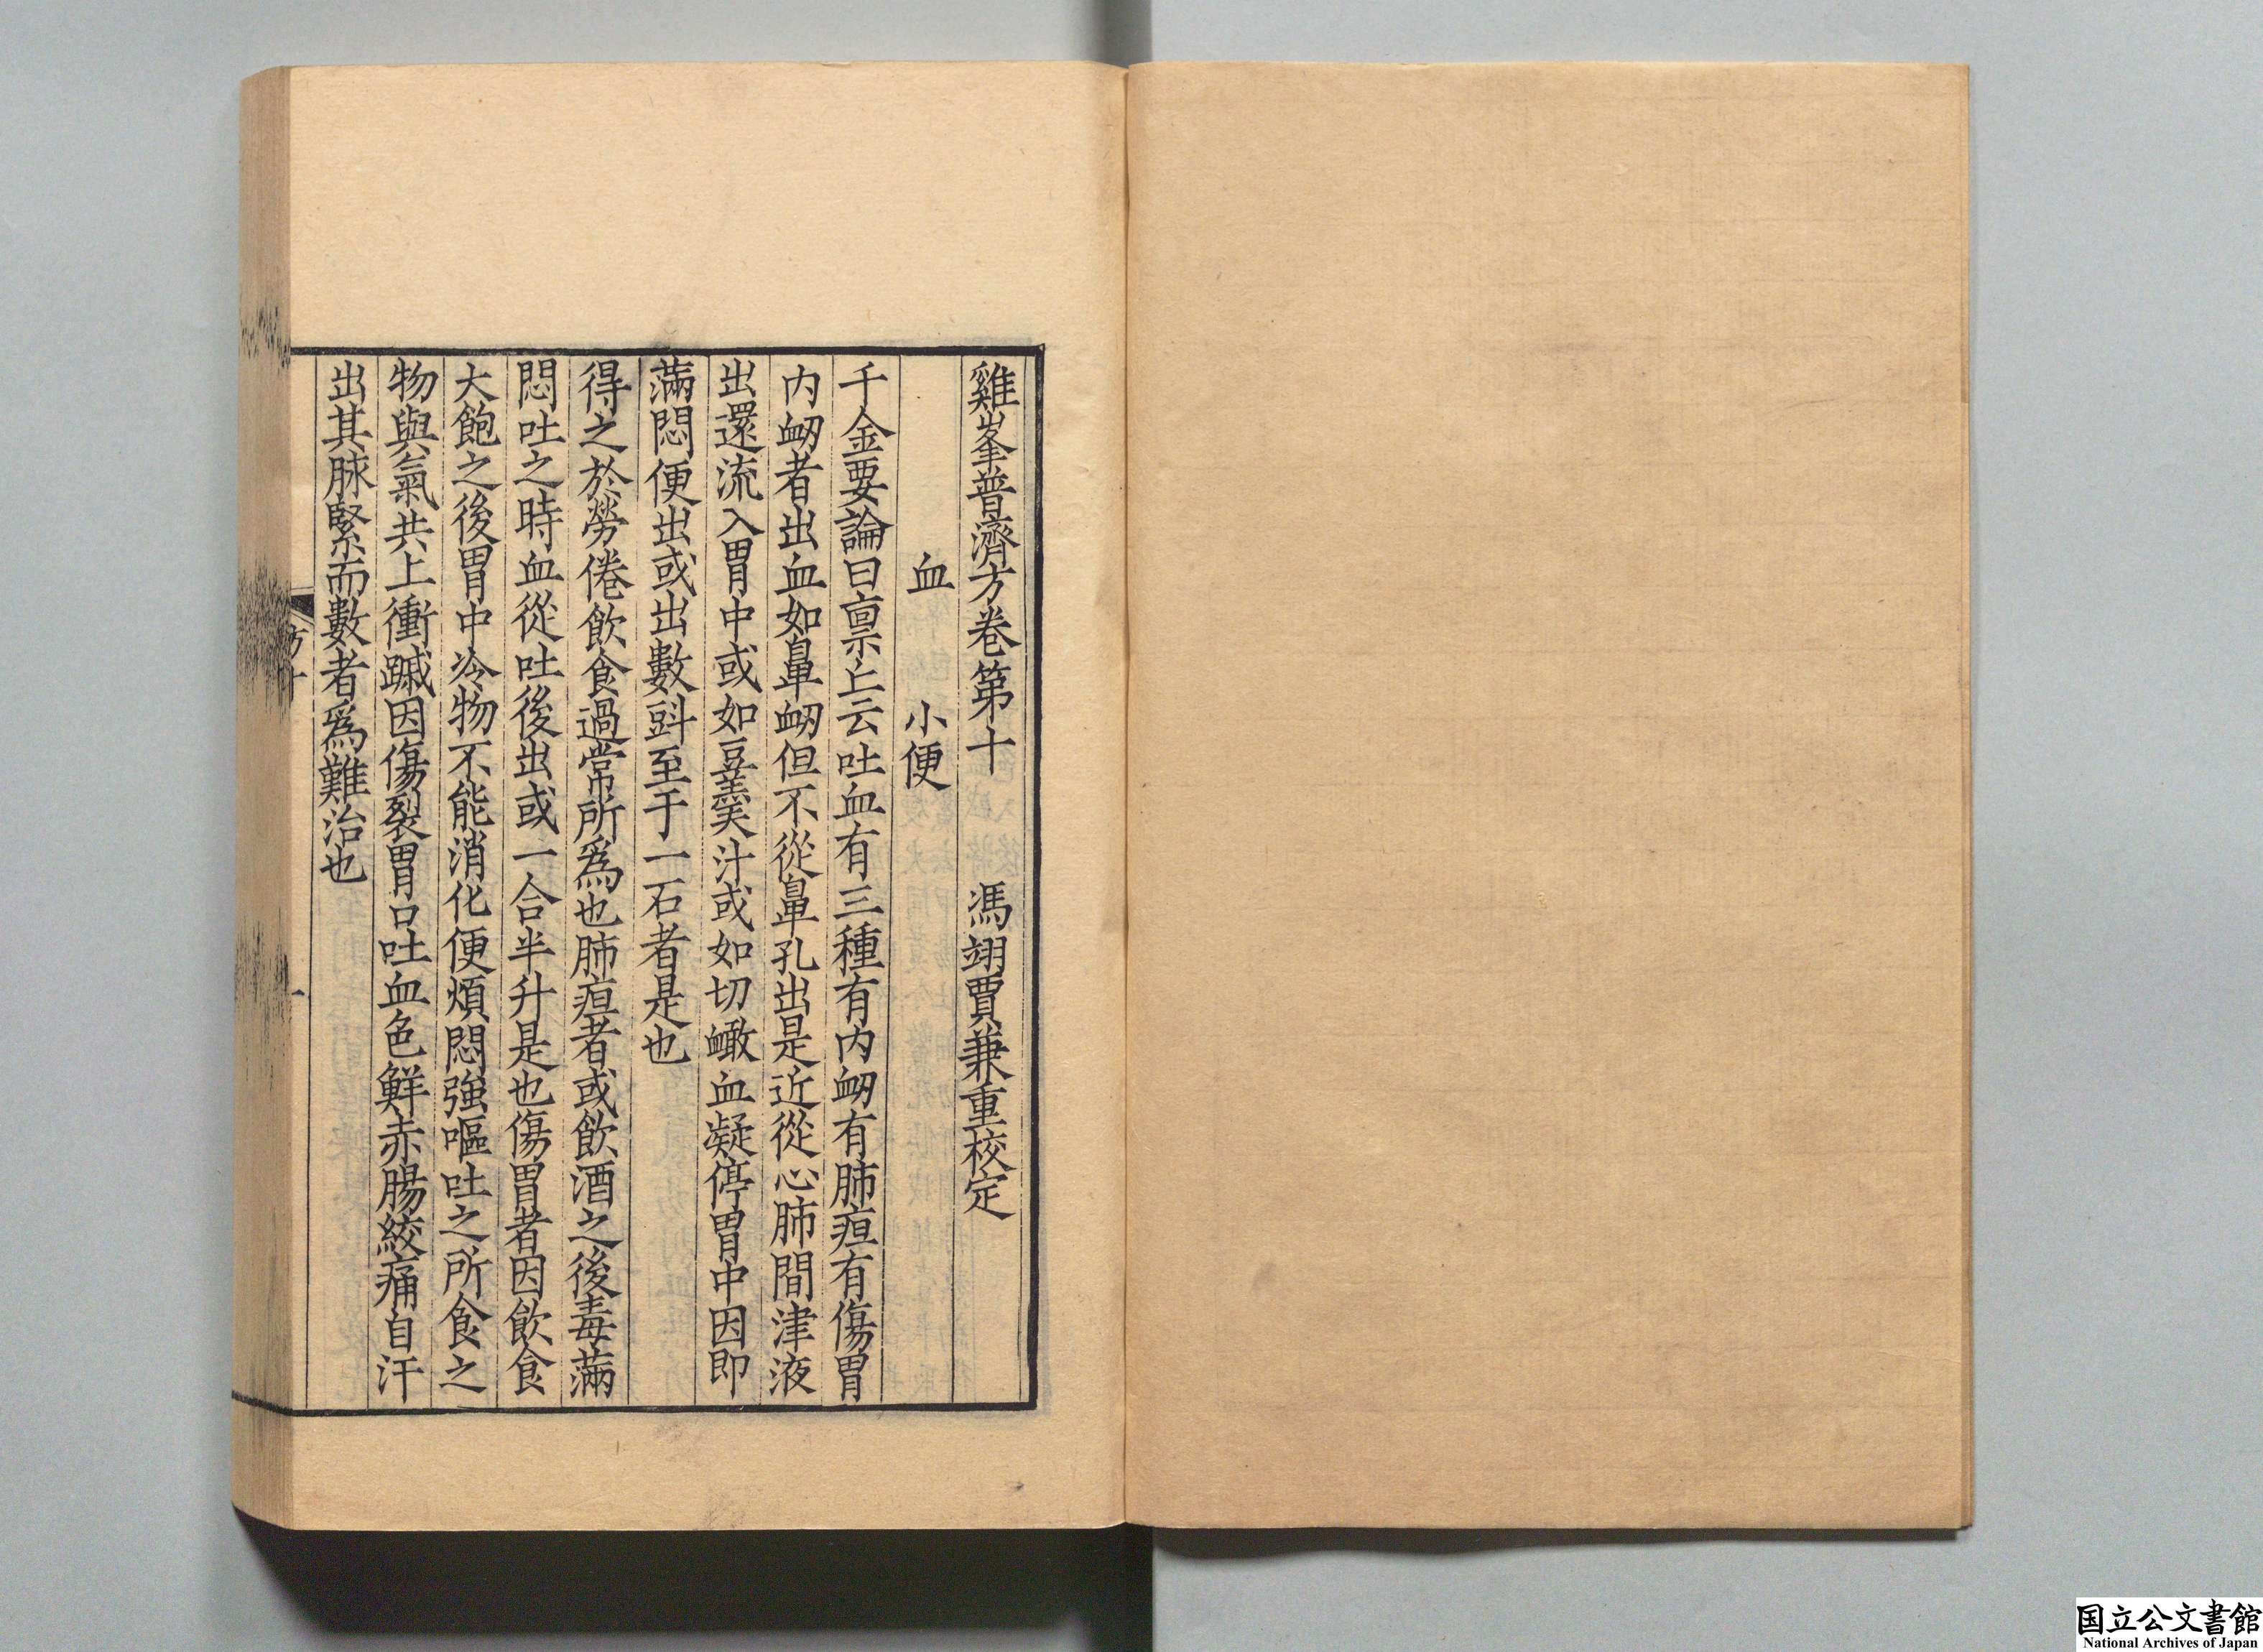 雞峯普濟方卷第十　馮翊賈兼重校定
血　小便
千金要論曰禀上云吐血有三種有内衂有肺疸有傷胃
内衂者出血如鼻衂但不從鼻孔出是近從心肺間津液
出還流入胃中或如豆羹汁或如切䘓血凝停胃中因即
滿悶便出或出數㪷至于一石者是也
得之於勞倦飲食過常所爲也肺疸者或飲酒之後毒滿
悶吐之時血從吐後出或一合半升是也傷胃者因飲食
大飽之後胃中冷物不能消化便煩悶強嘔吐之所食之
物與氣共上衝蹴因傷裂胃口吐血色鮮赤腸絞痛自汗
出其脉緊而數者爲難治也
方十
一
国立公文書館
National Archives of Japan